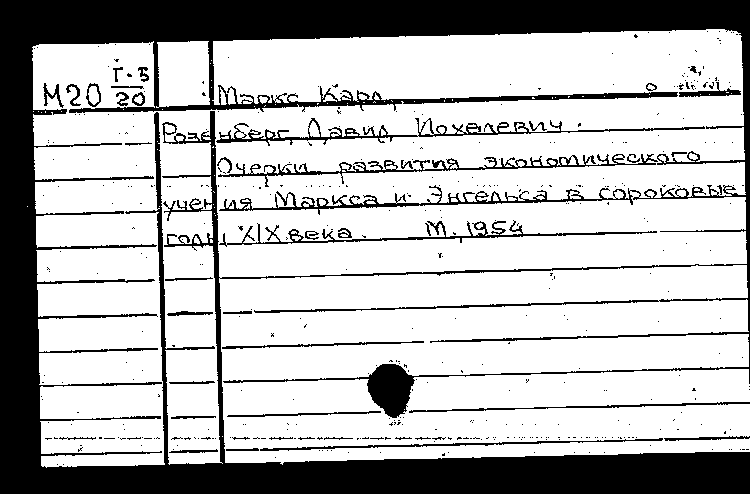 М20 Г-5/20 Маркс, Карл,
Розенберг, Давид Иохелевич.
Очерки развития экономического
учения Маркса и Энгельса в сороковые
годы XIX века. М., 1954